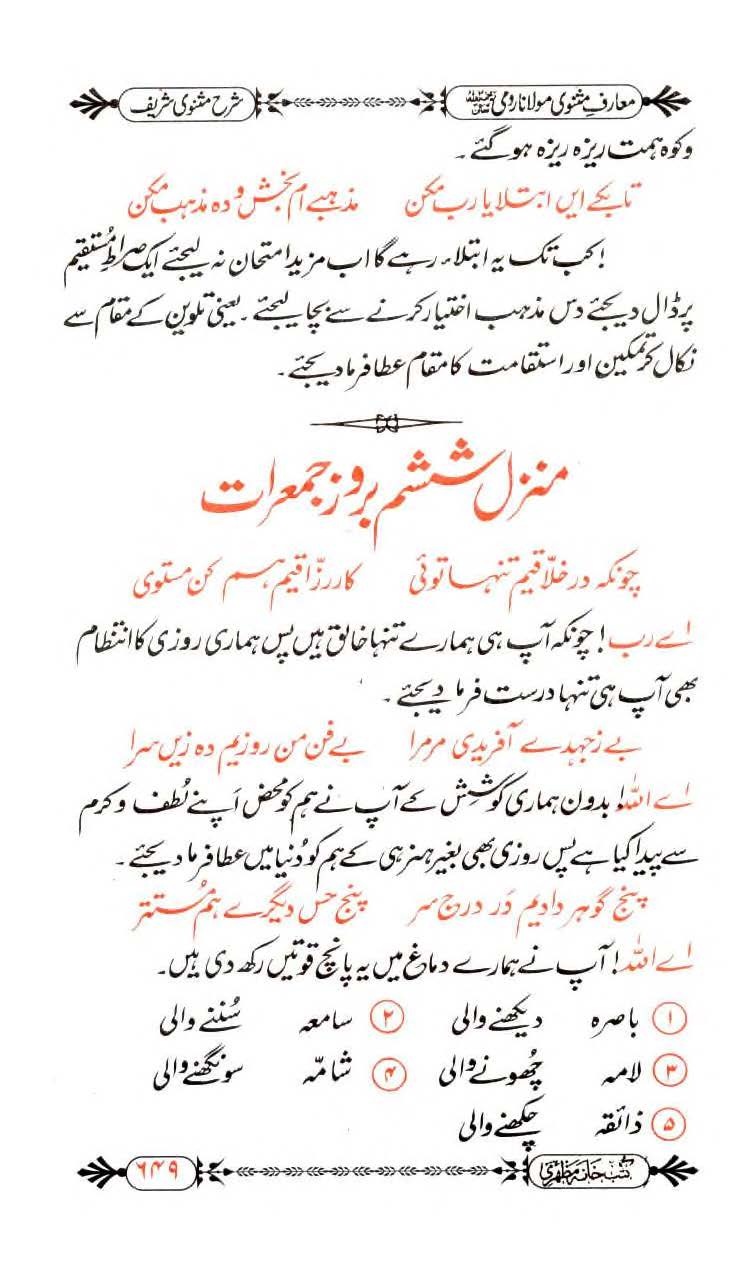 معارفِ مثنوی مولانا رومی رحمۃ اللہ تعالیٰ علیہ شرح مثنوی شریف
و کوہ ہمت ریزہ ریزہ ہوگئے۔
تابکے ایں ابتلا یا رب مکن مذہبے ام بخش و دہ مذہب مکن
! کب تک یہ ابتلاء رہے گا اب مزید امتحان نہ لیجئے ایک صراطِ مُستقیم
پر ڈال دیجئے دس مذہب اختیار کرنے سے بچا لیجئے۔ یعنی تلوین کے مقام سے
نکال کر تمکین اور استقامت کا مقام عطا فرما دیجئے۔
منزل ششم بروز جمعرات
چونکہ در خلّاقیم تنہا توئی کار رزّاقیم ہم کن مستوی
اے رب! چونکہ آپ ہی ہمارے تنہا خالق ہیں پس ہماری روزی کا انتظام
بھی آپ ہی تنہا درست فرما دیجئے۔
بے ز جہدے آفریدی مر مرا بے فن من روزیم دہ زیں سرا
اے اللہ! بدون ہماری کوشِش کے آپ نے ہم کو محض اَپنے لُطف و کرم
سے پیدا کیا ہے پس روزی بھی بغیر ہنر ہی کے ہم کو دُنیا میں عطا فرما دیجئے۔
پنج گوہر دادیم دَر درج سر پنج حس دیگرے ہم مُستتر
اے اللہ! آپ نے ہمارے دماغ میں یہ پانچ قوتیں رکھ دی ہیں۔
۱ باصرہ دیکھنے والی ۲ سامعہ سُننے والی
۳ لامہ چُھونے والی ۴ شامّہ سونگھنے والی
۵ ذائقہ چکھنے والی
کتب خانہ مظہری ۶۴۹